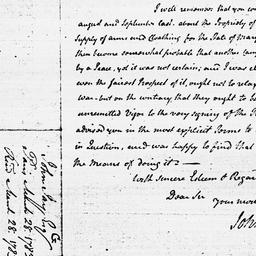 I well remember that you con
august and September last. about the Propriety of
Supply of arms and Cloathing for the State of Mary
then become somewhat probable that another Cam
by a Peace, yet it was not certain; and I was cl
even the fairest Prospect of it, ought not to relax
War— but on the contrary that they ought to be
unremitted Vigor to the very signing of the
advised you in the most explicit Terms to
in Question, and was happy to find that
the Means of doing it?—
With sincere Esteem & Regar
Dear Sir
your mo
John
John Jay
Paris March 28. 178
Rec'd March 28. 178